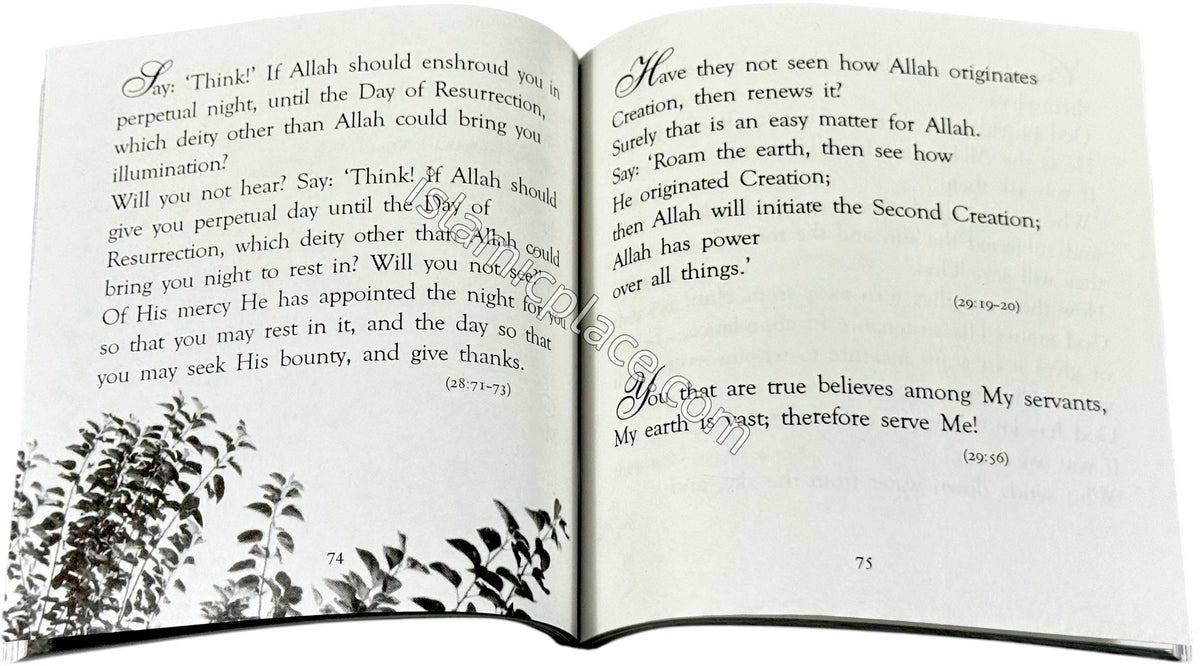 Say: 'Think!' If Allah should enshroud you in
perpetual night, until the Day of Resurrection,
which deity other than Allah could bring you
illumination?
Will you not hear? Say: 'Think! If Allah should
give you perpetual day until the Day of
Resurrection, which deity other than Allah could
bring you night to rest in? Will you not see?'
Of His mercy He has appointed the night for you
so that you may rest in it, and the day so that
you may seek His bounty, and give thanks.
(28:71-73)
74
Have they not seen how Allah originates
Creation, then renews it?
Surely that is an easy matter for Allah.
Say: 'Roam the earth, then see how
He originated Creation;
then Allah will initiate the Second Creation;
Allah has power
over all things.'
(29:19-20)
You that are true believes among My servants,
My earth is vast; therefore serve Me!
(29:56)
75
Islamicplace.com